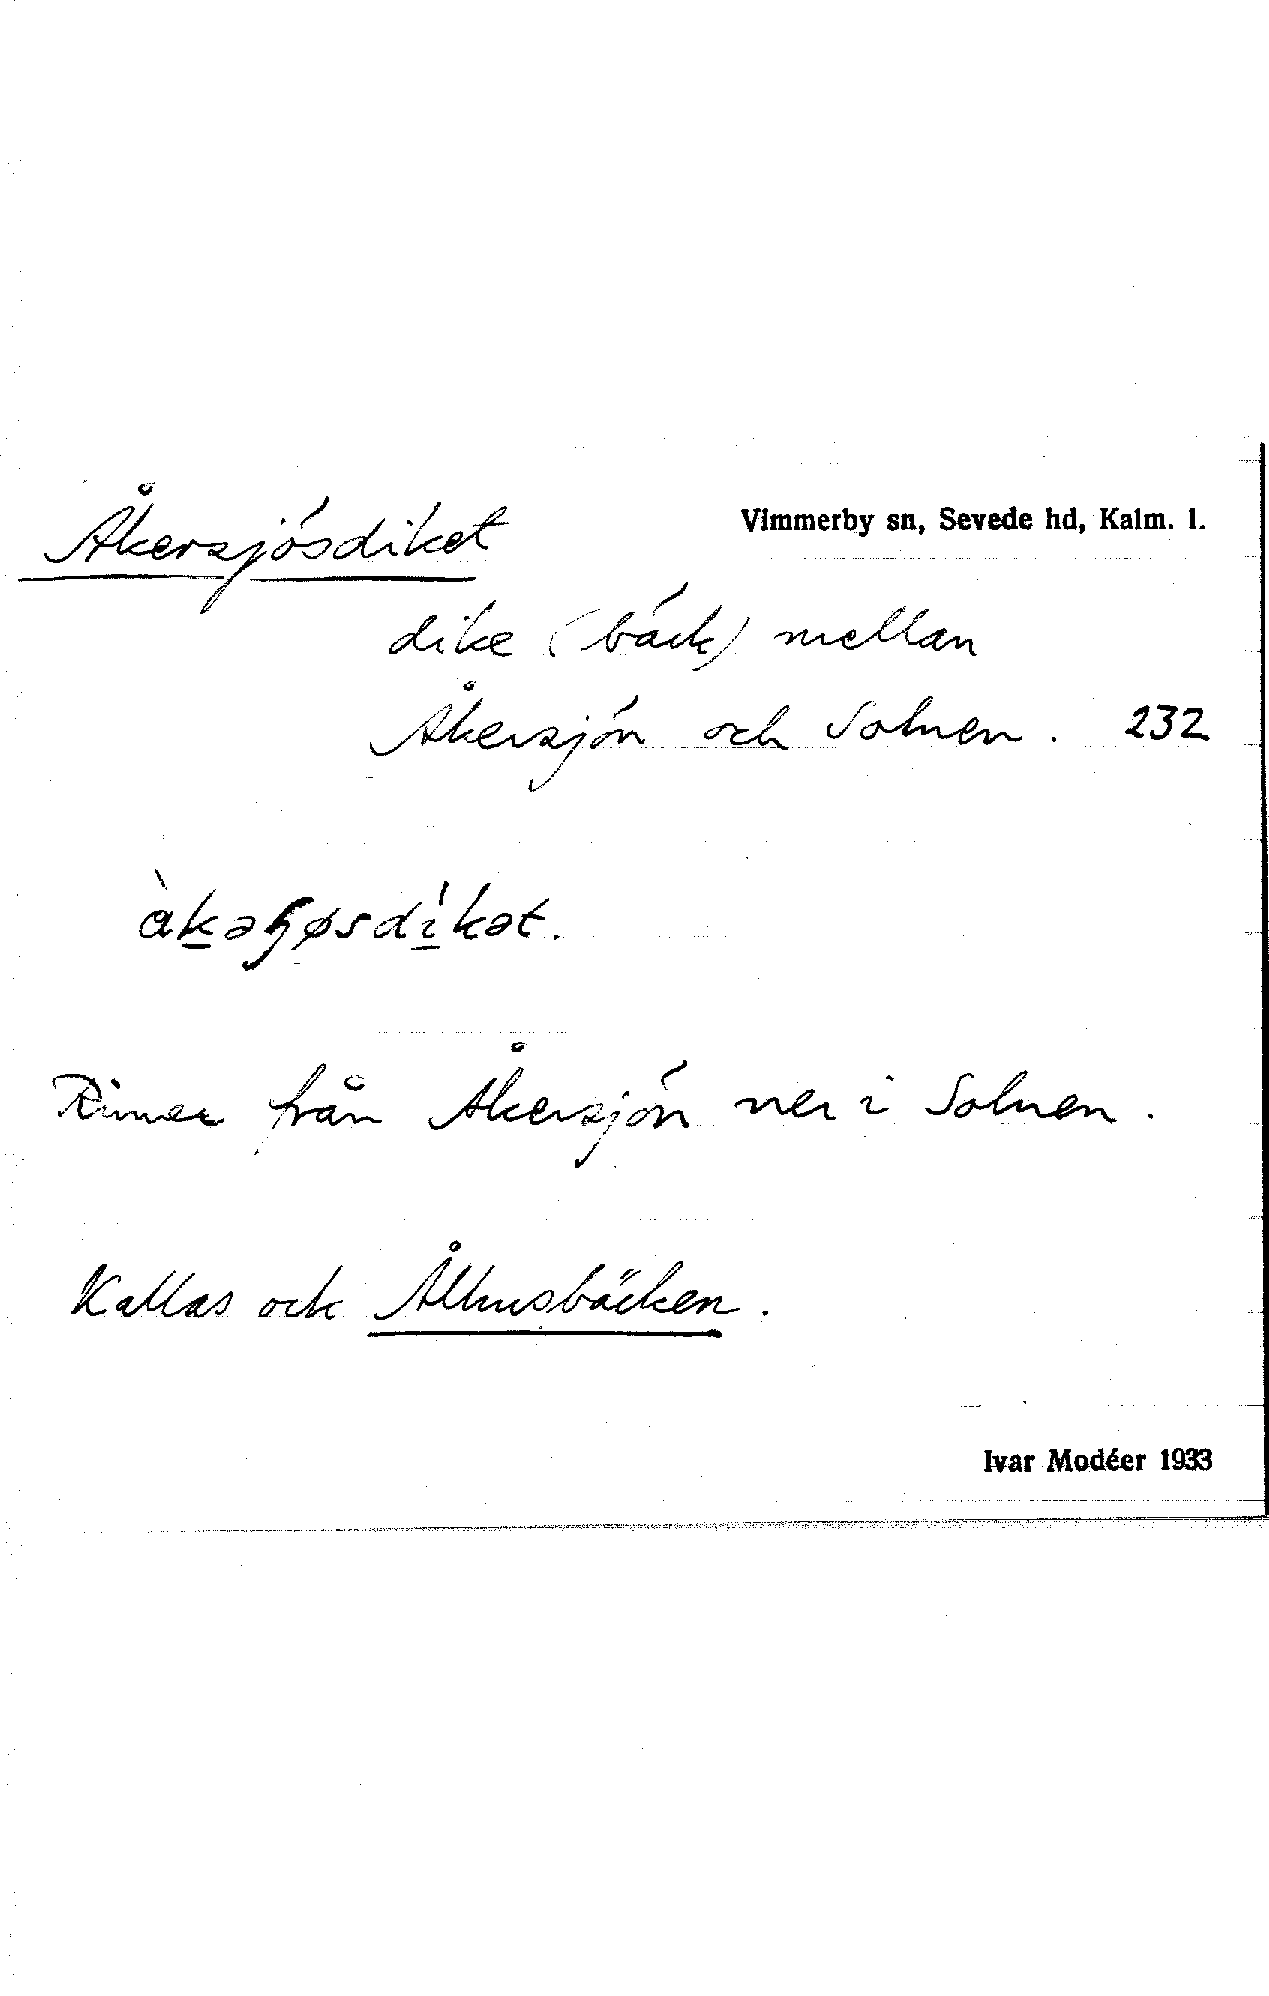 Åkersjösdiket
Vimmerby sn, Sevede hd, Kalm. l.
dike (bäck) mellan
Åkersjön och Solnen. 232
Rinner från Åkersjön ner i Solnen.
Kallas ock Ålhusbäcken.
Ivar Modéer 1933